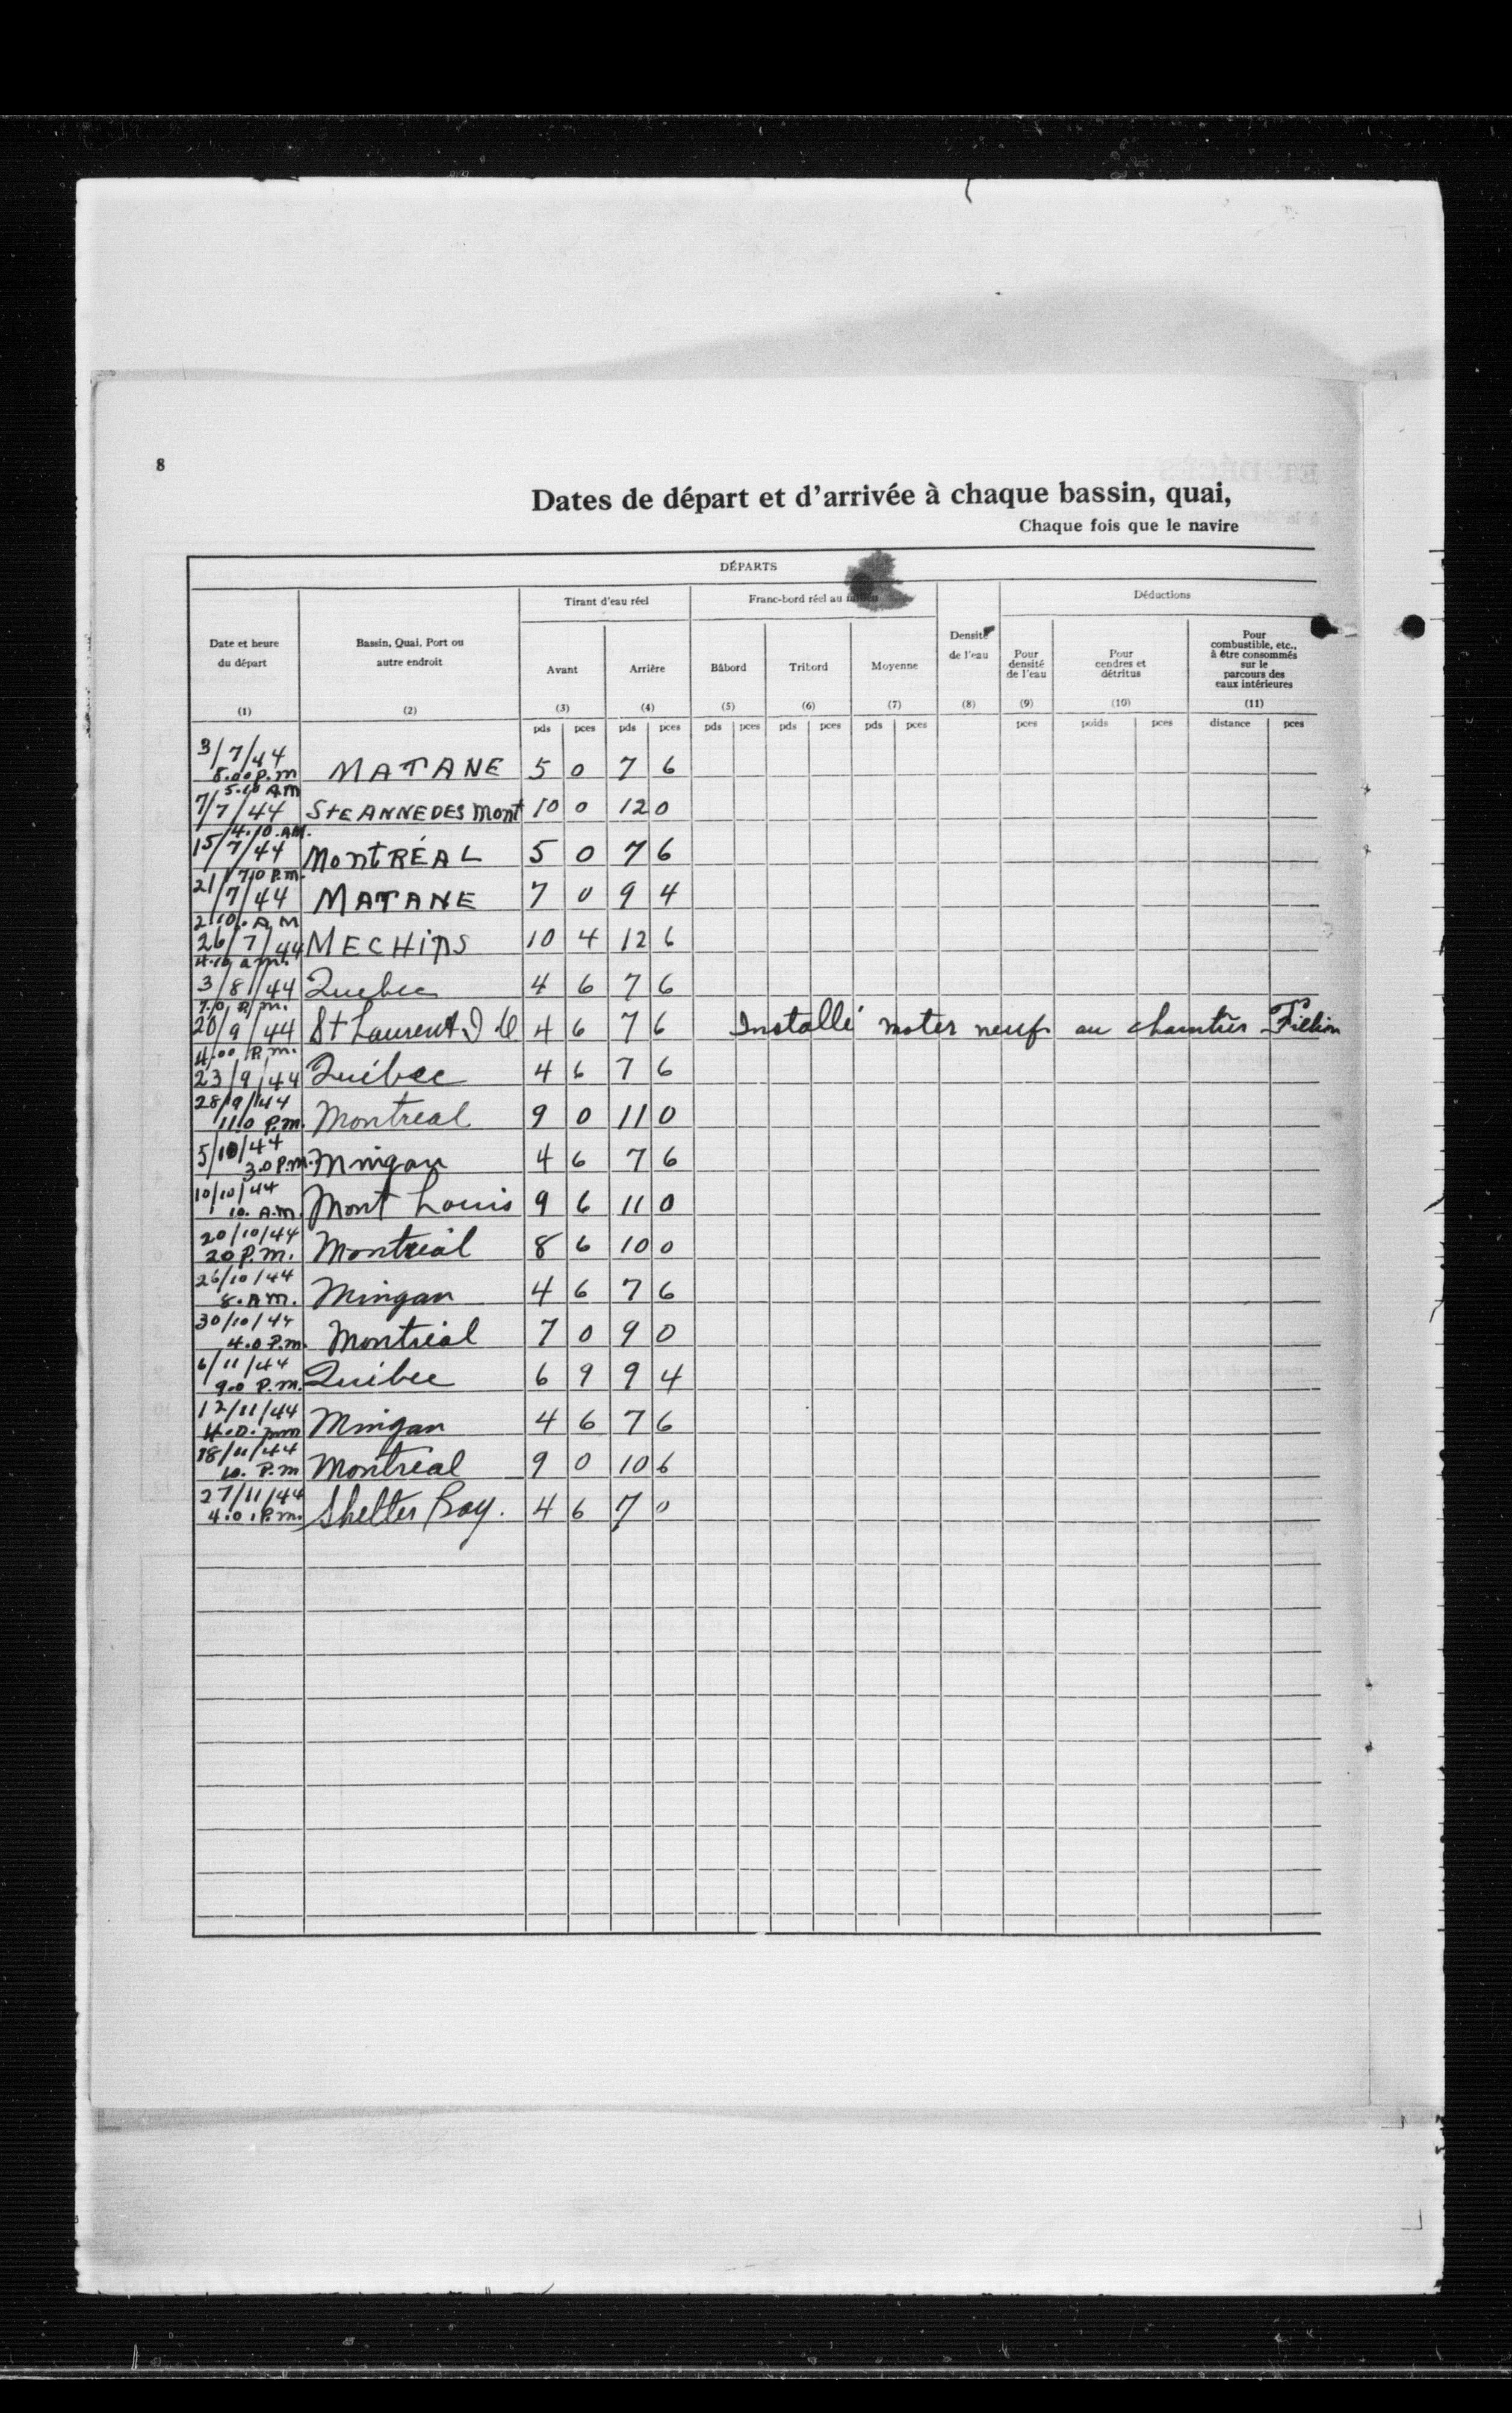 8
Dates de départ et d'arrivée à chaque bassin, quai,
Chaque fois que le navire
DÉPARTS
Date et heure du départ
(1)
Bassin, Quai, Port ou autre endroit
(2)
Tirant d'eau réel
Avant
(3)
Arrière
(4)
Franc-bord réel au
Bâbord
(5)
Tribord
(6)
Moyenne
(7)
Densité de l'eau
(8)
Déductions
Pour densité de l'eau
(9)
Pour cendres et détritus
(10)
Pour combustible, etc., à être consommés sur le parcours des eaux intérieures
(11)
pds pces pds pces pds pces pds pces pds pces pces poids pces distance pces
3/7/44 8.00 P.m MATANE 5 0 7 6
5.10 AM 7/7/44 Ste ANNE DES Mont 10 0 12 0
4.10.AM. 15/7/44 MontRÉAL 5 0 7 6
7.0 P.m. 21/7/44 MATANE 7 0 9 4
2.10. AM 26/7/44 MECHins 10 4 12 6
4.10 a.m. 3/8/44 Quebec 4 6 7 6
7.0 P.m. 20/9/44 St Laurent I O 4 6 7 6 Installé moter neuf au chantier Filion
4.00 P.m. 23/9/44 Québec 4 6 7 6
28/9/44 11.0 P.m. Montreal 9 0 11 0
5/10/44 3.0 P.m. Mingan 4 6 7 6
10/10/44 10. A.m. Mont Louis 9 6 11 0
20/10/44 20 P.m. Montréal 8 6 10 0
26/10/44 8.AM. Mingan 4 6 7 6
30/10/44 4.0 P.m. Montréal 7 0 9 0
6/11/44 9.0 P.m. Québec 6 9 9 4
12/11/44 4.0. pm Mingan 4 6 7 6
18/11/44 10. P.m Montréal 9 0 10 6
27/11/44 4.0.P.m. Shelter Bay. 4 6 7 0